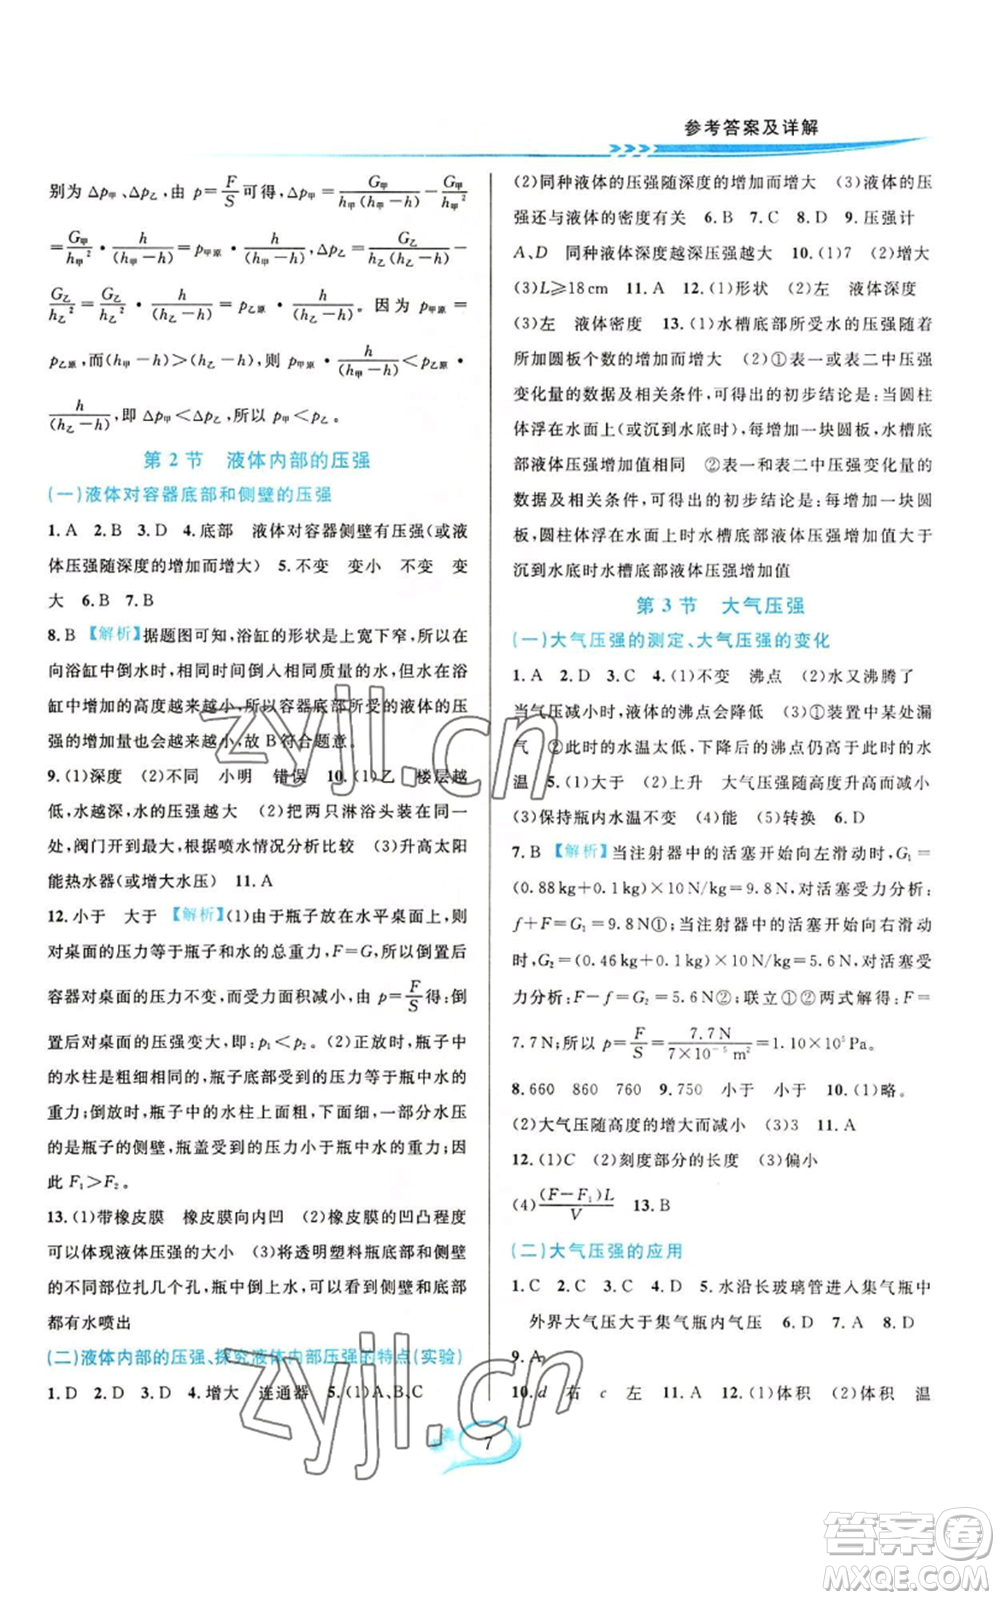 参考答案及详解
别为 Δp甲、Δp乙,由 p=F/S 可得,Δp甲=G甲/(h甲(h甲-h))-G甲/h甲²
=G甲/h甲²·h/(h甲-h)=p甲原·h/(h甲-h),Δp乙=G乙/(h乙(h乙-h))-
G乙/h乙²=G乙/h乙²·h/(h乙-h)=p乙原·h/(h乙-h)。因为 p甲原=
p乙原,而(h甲-h)>(h乙-h),则 p甲原·h/(h甲-h)<p乙原·
h/(h乙-h),即 Δp甲<Δp乙,所以 p甲<p乙。
第2节 液体内部的压强
(一)液体对容器底部和侧壁的压强
1.A 2.B 3.D 4.底部 液体对容器侧壁有压强(或液
体压强随深度的增加而增大) 5.不变 变小 不变 变
大 6.B 7.B
8.B 【解析】据题图可知,浴缸的形状上宽下窄,所以在
向浴缸中倒水时,相同时间倒人相同质量的水时,在浴
缸中增加的高度越来越小,所以容器底部所受的液体的压
强的增加量也会越来越小,故B符合题意。
9.(1)深度 (2)不同 小明 错误 10.(1)乙 楼层越
低,水越深,水的压强越大 (2)把两只淋浴头装在一
处,阀门开到最大,根据喷水情况分析比较 (3)升高太阳
能热水器(或增大水压) 11.A
12.小于 大于 【解析】(1)由于瓶子放在水平桌面上,则
对桌面的压力等于瓶子和水的总重力,F=G,所以倒置后
容器对桌面的压力不变,而受力面积减小,由 p=F/S 得:倒
置后对桌面的压强变大,即:p₁<p₂。(2)正放时,瓶子中
的水柱是粗细相同的,瓶子底部受到的压力等于瓶中水的
重力;倒放时,瓶子中的水柱上面粗,下面细,一部分水压
的是瓶子的侧壁,瓶盖受到的压力小于瓶中水的重力;因
此 F₁>F₂。
13.(1)带橡皮膜 橡皮膜向内凹 (2)橡皮膜的凹凸程度
可以体现液体压强的大小 (3)将透明塑料瓶底部和侧壁
的不同部位扎几个孔,瓶中倒上水,可以看到侧壁和底部
都有水喷出
(二)液体内部的压强、探究液体内部压强的特点(实验)
1.D 2.B 3.A 4.增大 连通器 5.(1)A、B、C
(2)同种液体的压强随深度的增加而增大 (3)液体的压
强还与液体的密度有关 6.B 7.C 8.D 9.压强计
A、D 同种液体深度越深压强越大 10.(1)7 (2)增大
(3)L≥18cm 11.A 12.(1)形状 (2)左 液体深度
(3)左 液体密度 13.(1)水槽底部所受水的压强随着
所加圆板个数的增加而增大 (2)①表一或表二中压强
变化量的数据及相关条件,可得出的初步结论是:当圆柱
体浮在水面上(或沉到水底)时,每增加一块圆板,水槽底
部液体压强增加值相同 ②表一和表二中压强变化量的
数据及相关条件,可得出的初步结论是:每增加一块圆
板,圆柱体浮在水面上时水槽底部液体压强增加值大于
沉到水底时水槽底部液体压强增加值
第3节 大气压强
(一)大气压强的测定、大气压强的变化
1.A 2.D 3.C 4.(1)不变 沸点 (2)水又沸腾了
当气压减小时,液体的沸点会降低 (3)①装置中某处漏
气 ②此时的水温太低,下降后的沸点仍高于此时的水
温 5.(1)大于 (2)上升 大气压强随高度升高而减小
(3)保持瓶内水温不变 (4)能 (5)转换 6.D
7.B 【解析】当注射器中的活塞开始向左滑动时,G₁=
(0.88kg+0.1kg)×10N/kg=9.8N,对活塞受力分析:
f+F=G₁=9.8N①;当注射器中的活塞开始向右滑动
时,G₂=(0.46kg+0.1kg)×10N/kg=5.6N,对活塞受
力分析:F-f=G₂=5.6N②;联立①②两式解得:F=
7.7N;所以 p=F/S=7.7N/(7×10⁻⁵m²)=1.10×10⁵Pa。
8.660 860 760 9.750 小于 小于 10.(1)略。
(2)大气压随高度的增大而减小 (3)3 11.A
12.(1)C (2)刻度部分的长度 (3)偏小
(4)(F-F₁)L/V 13.B
(二)大气压强的应用
1.C 2.C 3.D 4.D 5.水沿长玻璃管进入集气瓶中
外界大气压大于集气瓶内气压 6.D 7.A 8.D
9.A
10.d 右 c 左 11.A 12.(1)体积 (2)体积 温
7
zyjl.cn
zyjl.cn
答案圈
MXQE.COM